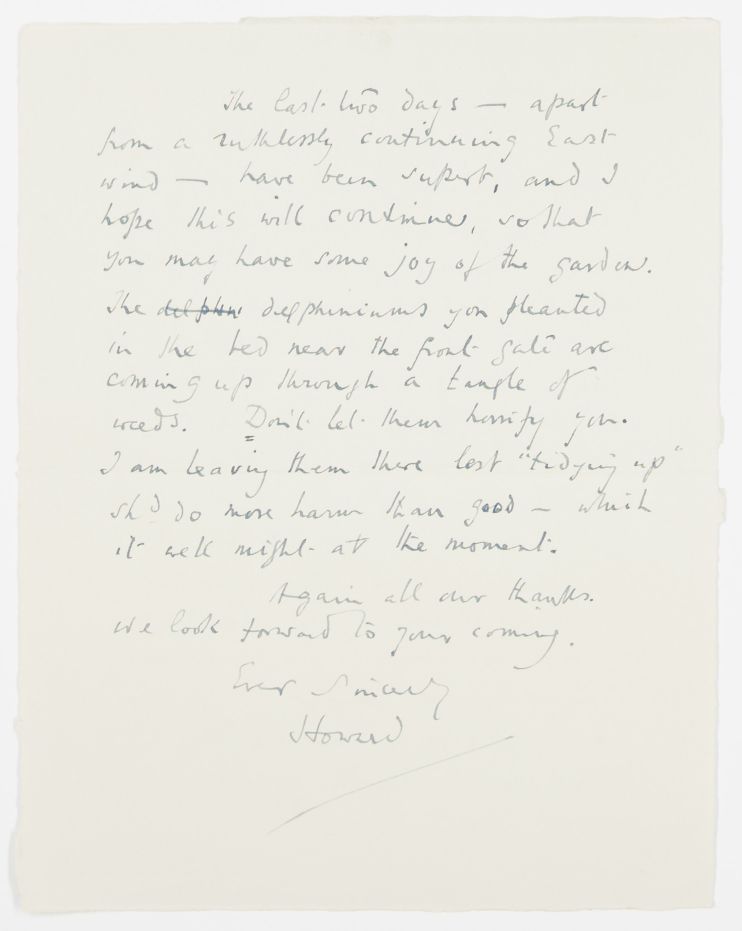 The last two days — apart
from a ruthlessly continuing East
wind — have been superb, and I
hope this will continue, so that
you may have some joy of the garden.
The delphin delphiniums you planted
in the bed near the front gate are
coming up through a tangle of
weeds. Don't let them horrify you.
I am leaving them there lest "tidying up"
shd do more harm than good — which
it well might at the moment.
Again all our thanks.
We look forward to your coming.
Ever Sincerely
Howard